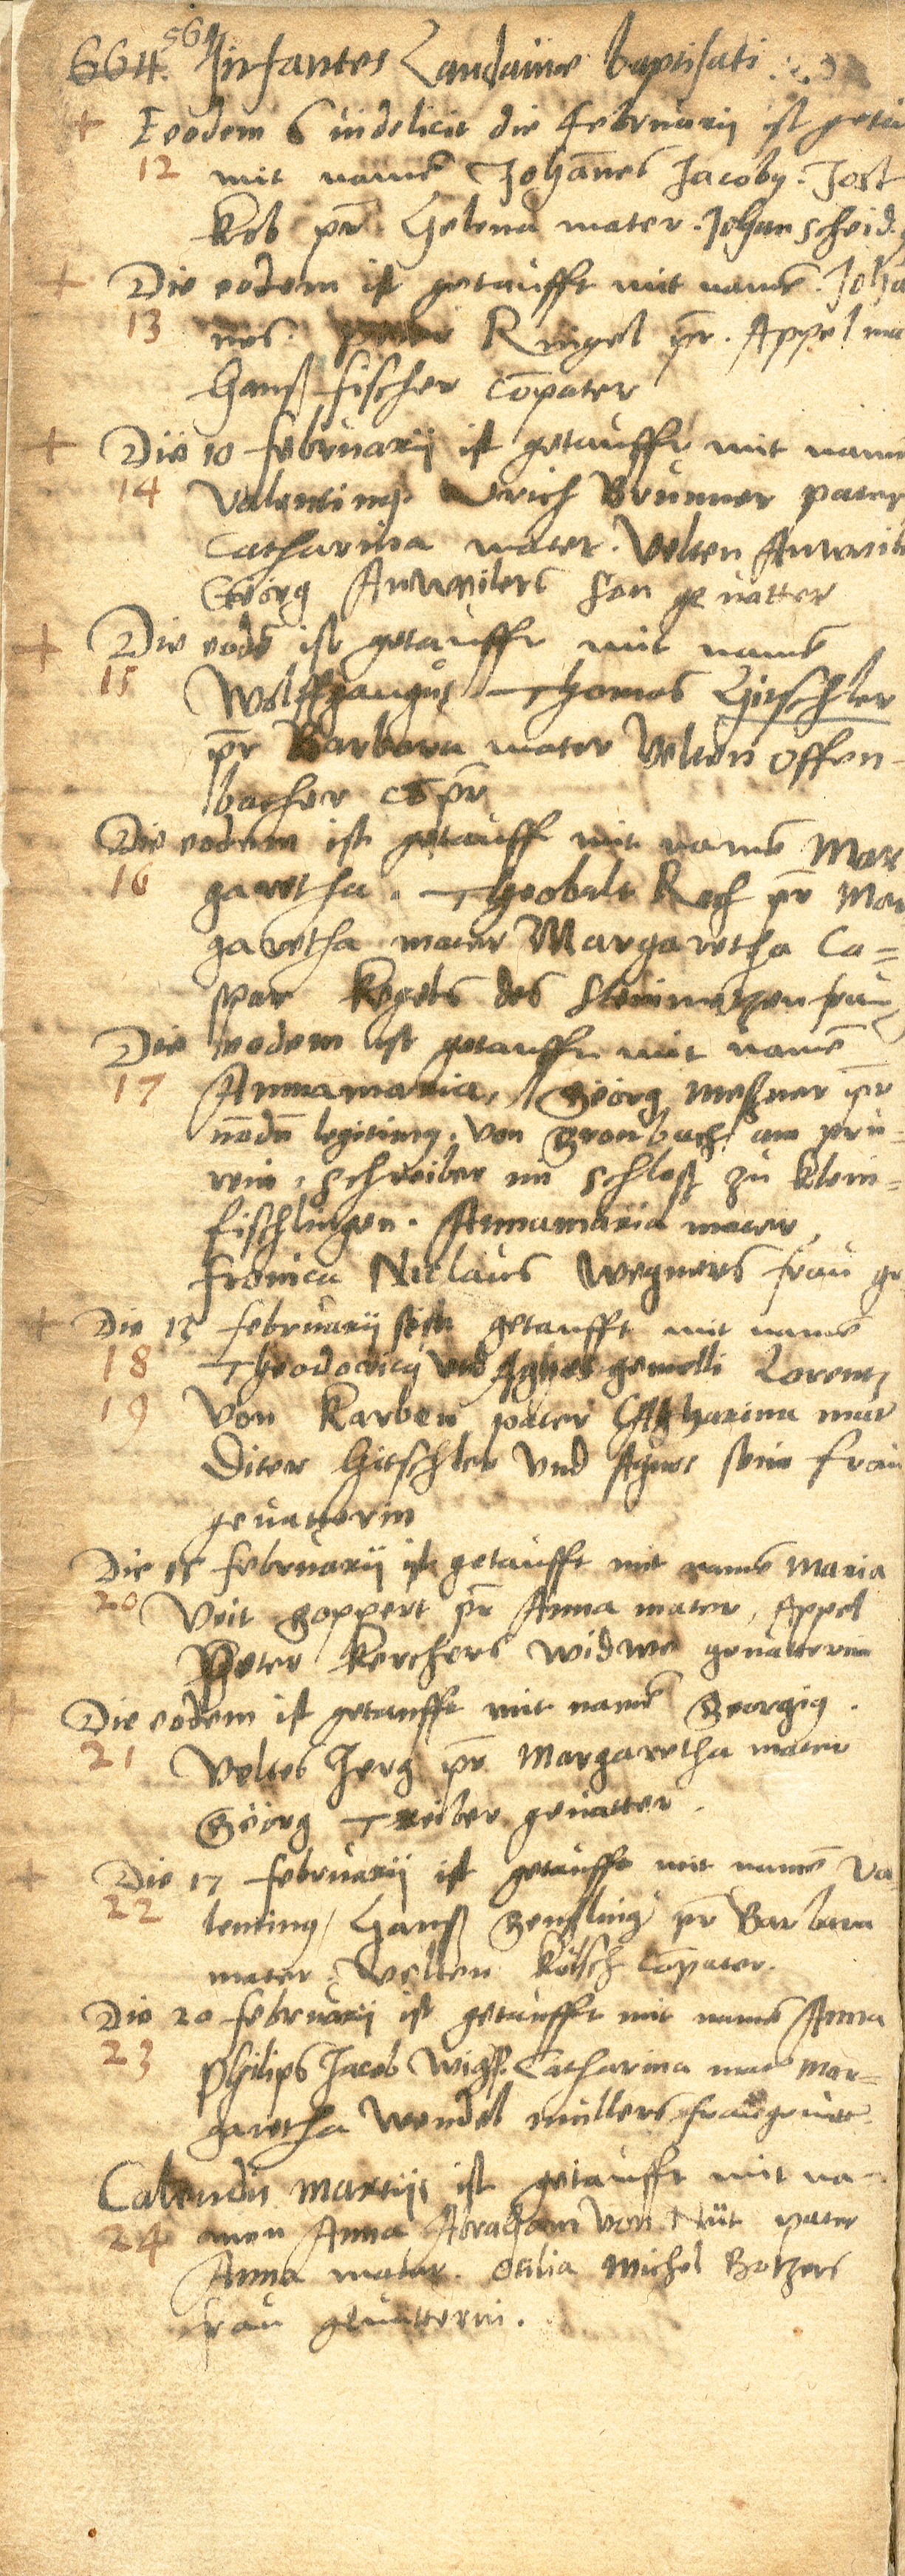 564
664. Infantes Landauiae baptisati
+ Eeodem 6 uidelicit die Februarij ist getau
12 mit namē Johānes Jacoby. Jost
Kob pr̄ Helena mater. Johan scheid
+ Die eodem ist getaufft mit namē. Johā
13 nes. peter Ringel pr̄. Appel ma
Hanß fischer cōpater
+ Die 10 februarij ist getaufft mit namē
14 Valentinus Vlrich Brunner pater
Catharina mater. Velten Anweil
Georg Anweilers son geuatter
+ Die eodē ist getaufft mit namē
15 Wolffgangus Thomas Hitschler
pr̄ Barbara mater Velten Offen-
bacher cōpr̄
Die eodem ist getaufft mit namē Mar
16 garetha. Theobalt Roch pr̄ Mar
garetha mater Margaretha Ca=
spar Kegels des steinmetzen frau
Die eodem ist getaufft mit namē
17 Annamaria, Georg Meßner pr̄
legitimus. von Bronbach am
rein, schreiber im schloß zu klein=
fischlingen. Annamaria mater,
fronica Niclaus Wegners frau ge
+ Die 13 februarij sein getaufft mit namē
18 Theodoricus und Agnes gemelli Lorentz
19 von Karben pater Catharina mat
Diter Hitschler vnd Agnes sein frau
geuatterin
Die 15 februarij ist getaufft mit namē Maria
20 Veit Goppert pr̄ Anna mater, Appel
Peter Kerchers widwe geuatterin
+ Die eodem ist getaufft mit namē Georgius.
21 Veltes Jerg pr̄ Margaretha mater
Georg Treiber geuatter.
+ Die 17 februarij ist getaufft mit namē Va
22 lentinus, Hanß Gensling pr̄ Barbara
mater. Velten Kölsch cōpater.
Die 20 februarij ist getaufft mit namē Anna
23 Philips Jacob Wigß. Catharina mater Mar=
garetha Wendel Müllers frau geuatt
Calendis Martijs ist getaufft mit na-
24 men Anna Abraham von Nüt pater
Anna mater. Otilia Michel Botzers
frau geuatterin.